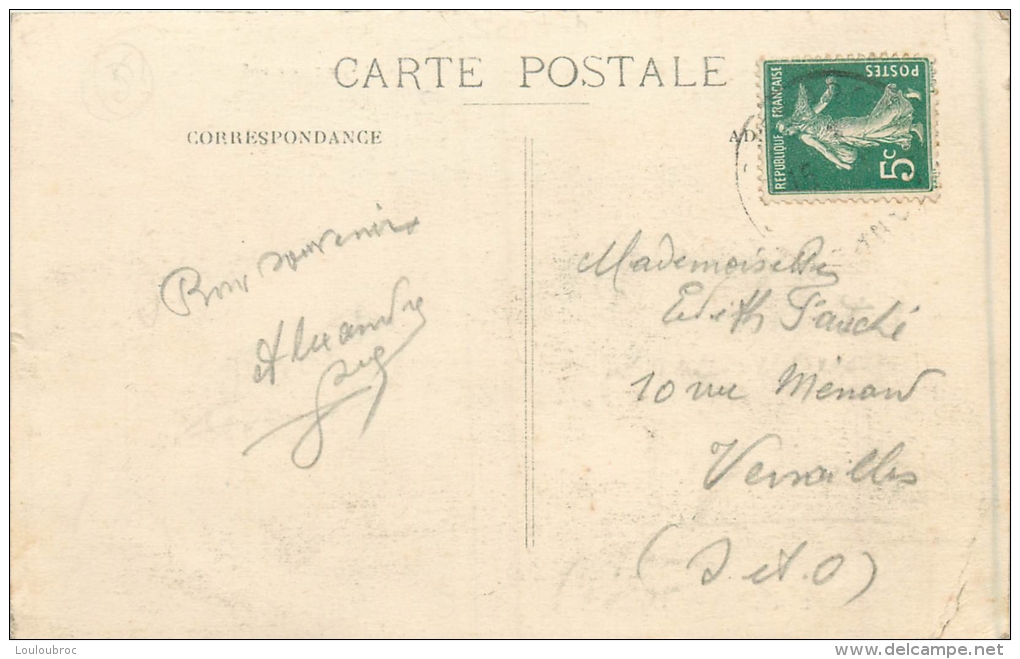 CARTE POSTALE
CORRESPONDANCE
AD
RÉPUBLIQUE FRANÇAISE
POSTES
5c
Bon souvenir
Alexandre
Mademoiselle
Edith Fauché
10 rue Ménard
Versailles
(S. et. O)
Louloubroc
www.delcampe.net